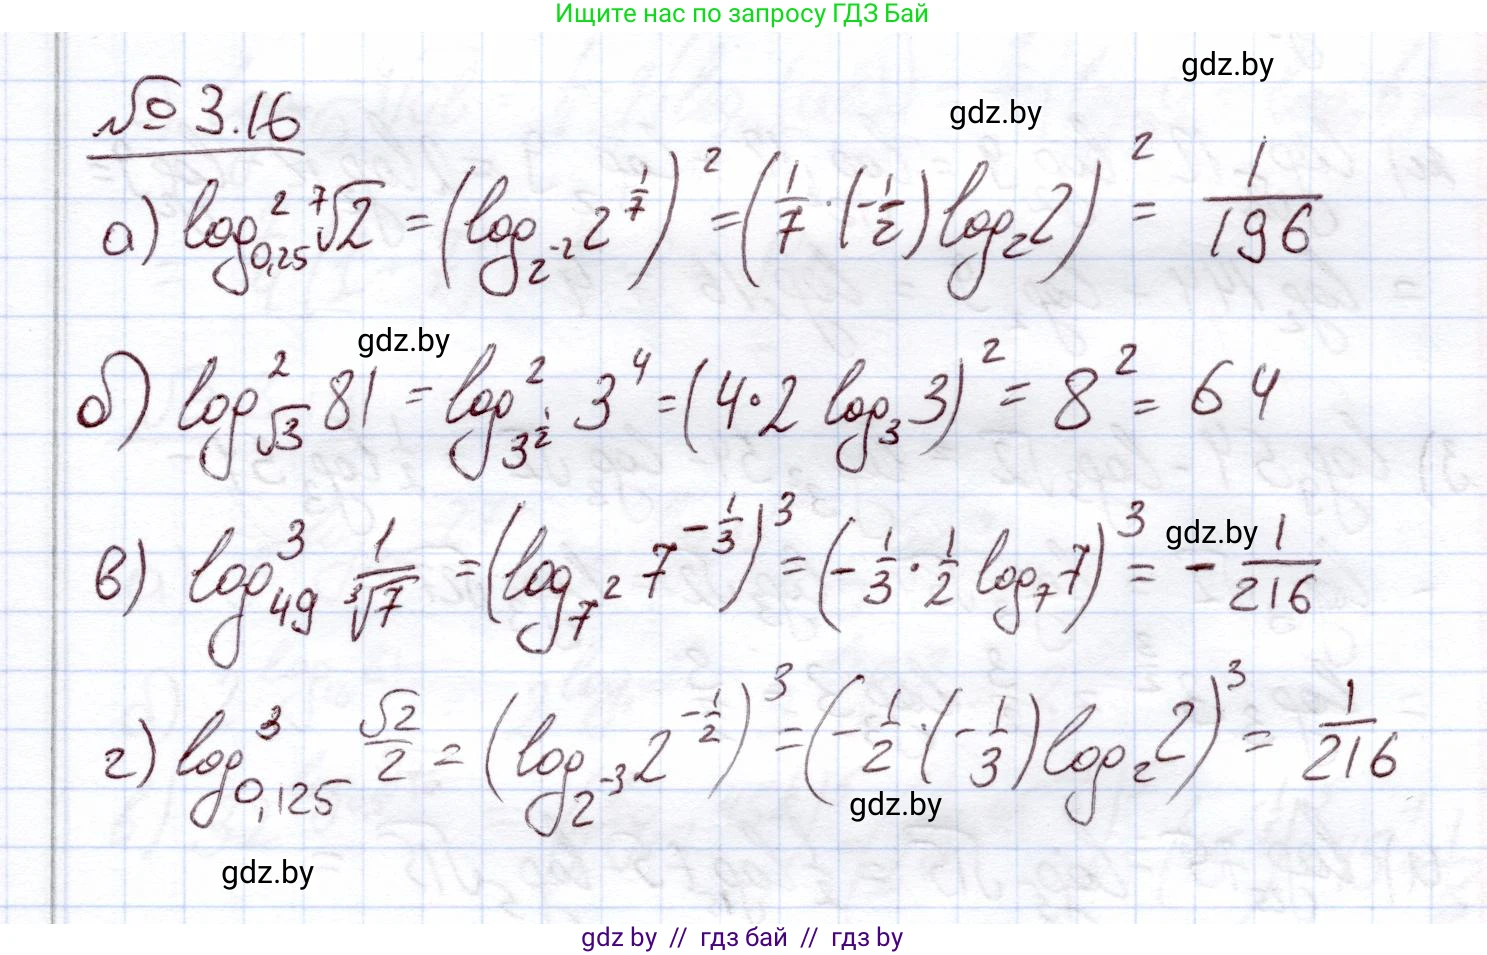 Ищите нас по запросу ГДЗ Бай
gdz.by
gdz.by
№ 3.16
а) log²_{0,25} ⁷√2 = (log_{2⁻²} 2^{1/7})² = (1/7 · (-1/2) log₂ 2)² = 1/196
gdz.by
б) log²_{√3} 81 = log²_{3^{1/2}} 3⁴ = (4·2 log₃ 3)² = 8² = 64
gdz.by
в) log³_{49} 1/³√7 = (log_{7²} 7^{-1/3})³ = (-1/3 · 1/2 log₇ 7)³ = -1/216
г) log³_{0,125} √2/2 = (log_{2⁻³} 2^{-1/2})³ = (-1/2 · (-1/3) log₂ 2)³ = 1/216
gdz.by
gdz.by
gdz by // гдз бай // гдз by